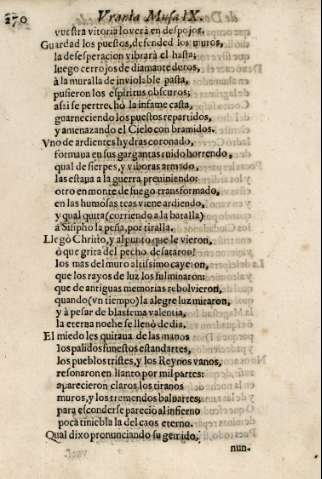 270 Vrania Musa IX.
vuestra vitoria lo verà en despojos.
Guardad los puestos, defended los muros,
la desesperacion vibrarà el hasta;
luego cerrojos de diamante duros,
à la muralla de inviolable pasta,
pusieron los espiritus obscuros;
assi se pertrechò la infame casta,
guarneciendo los puestos repartidos,
y amenazando el Cielo con bramidos.
Vno de ardientes hydras coronado,
formaua en sus gargantas ruido horrendo,
qual de sierpes, y viboras armado
las está a la guerra preuiniendo:
otro en monte de fuego transformado,
en las humosas teas viene ardiendo,
y qual quita (corriendo a la batalla)
à Sisipho la peña, por tiralla.
Llegò Christo, y al punto que le vieron,
ò que grita del pecho desataron!
los mas del muro altissimo cayeron,
que los rayos de luz los fulminaron:
que de antiguas memorias rebolvieron,
quando (vn tiempo) la alegre luz miraron,
y à pesar de blasfema valentia,
la eterna noche se llenò de dia.
El miedo les quitaua de las manos
los palidos funestos estandartes,
los pueblos tristes, y los Reynos vanos,
resonaron en llanto por mil partes:
aparecieron claros los tiranos
muros, y los tremendos baluartes,
para esconderse pareciò al infierno
poca tiniebla la del caos eterno.
Qual dixo pronunciando su gemido,
nun-